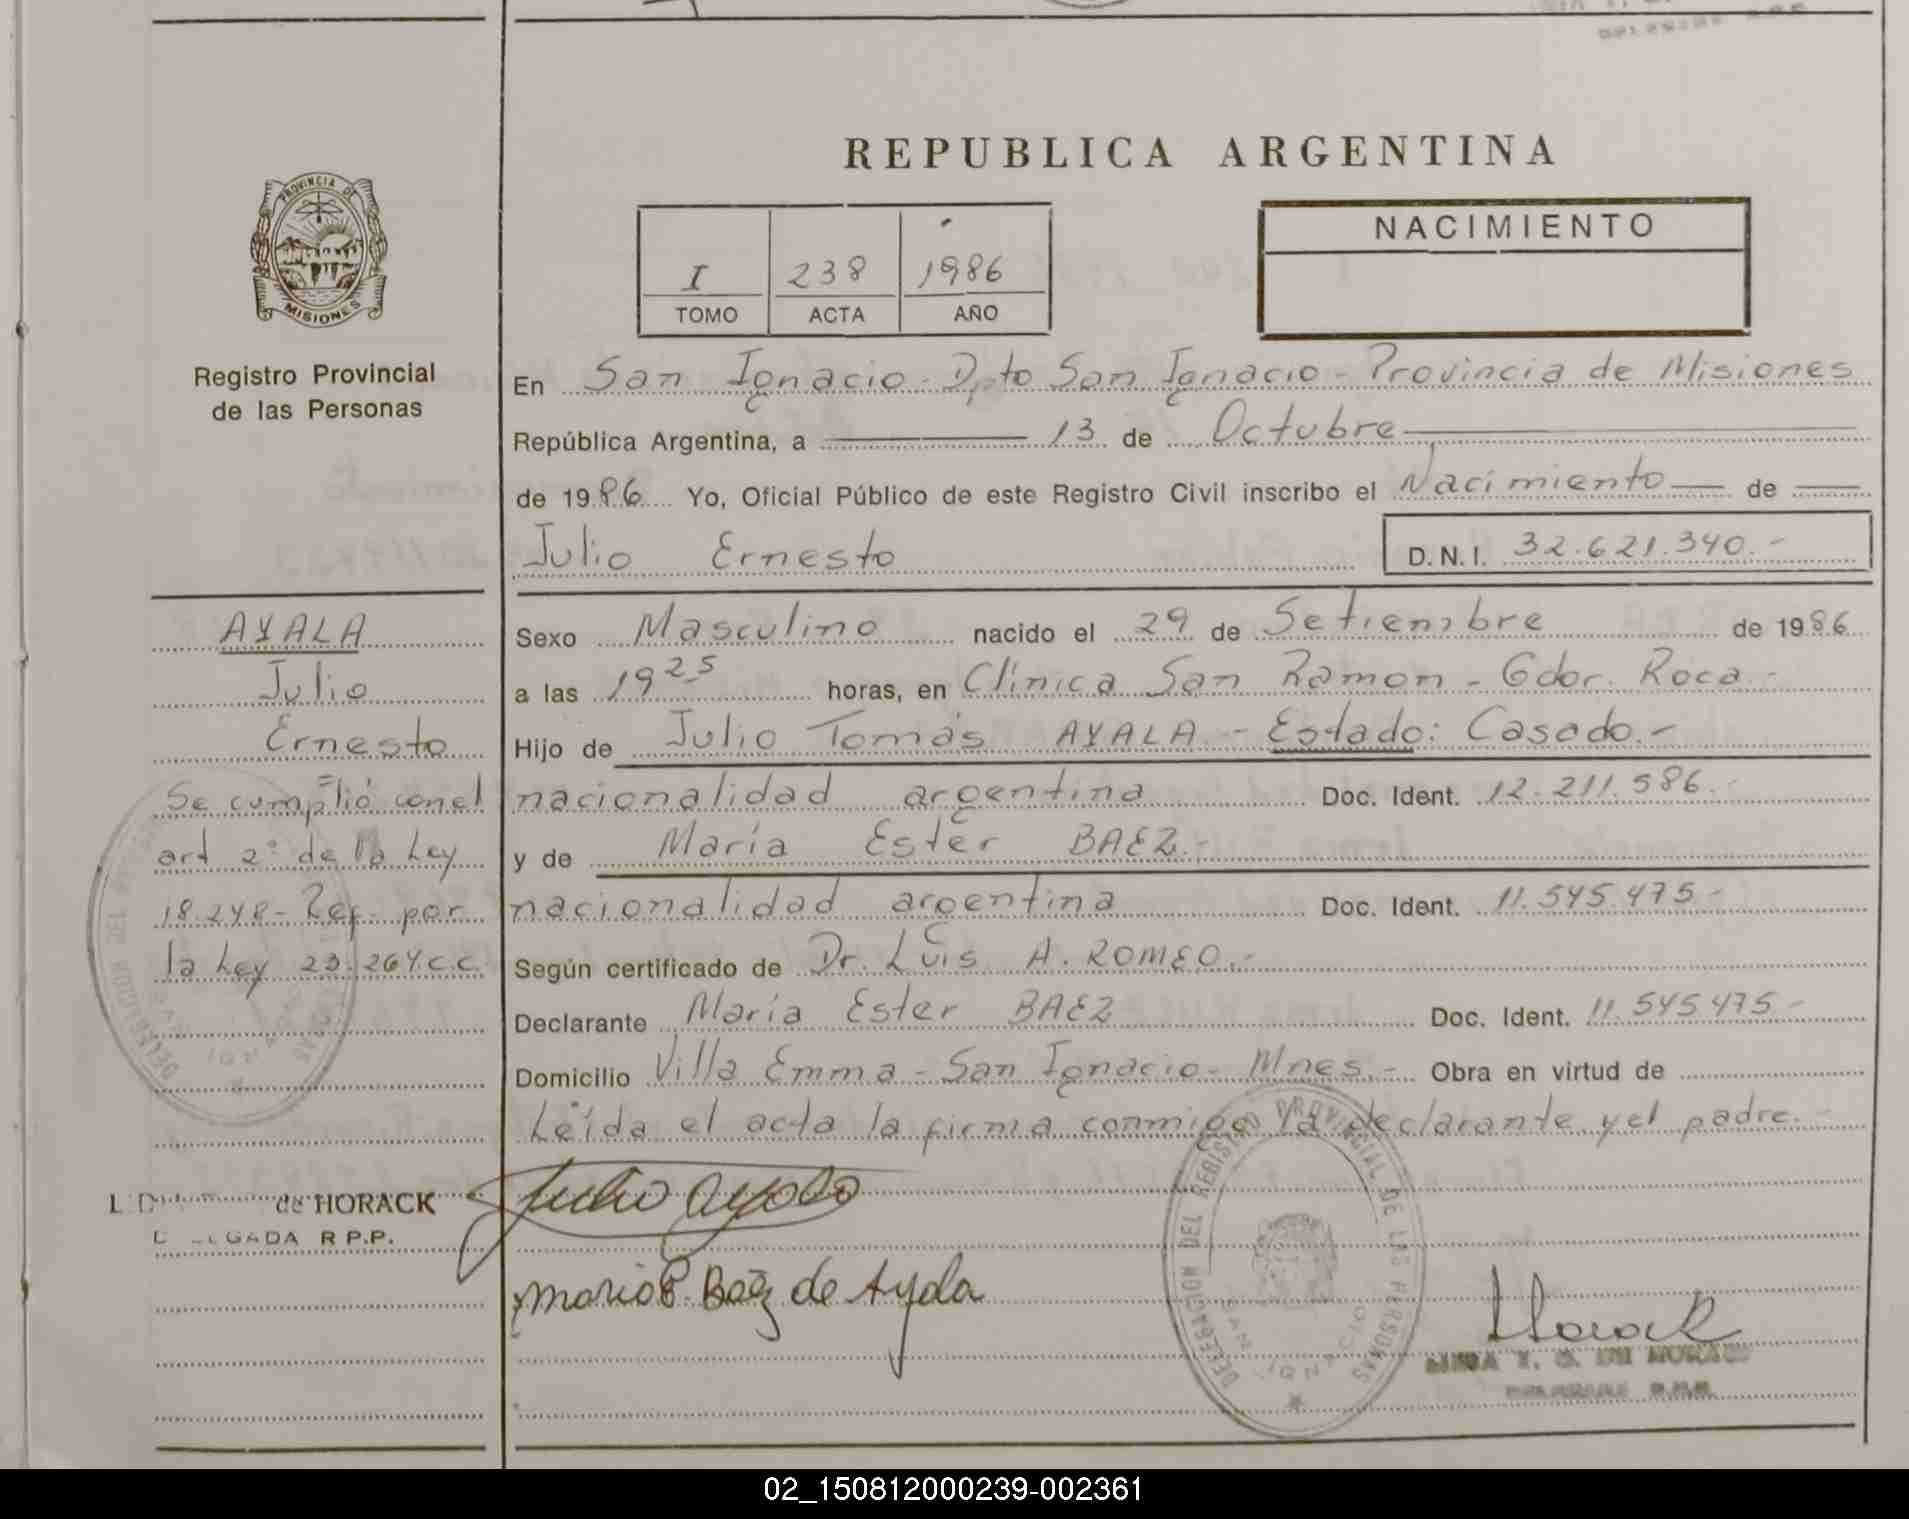 REPUBLICA ARGENTINA
PROVINCIA DE MISIONES
Registro Provincial
de las Personas
I 238 1986
TOMO ACTA AÑO
NACIMIENTO
En San Ignacio - Dpto San Ignacio - Provincia de Misiones
República Argentina, a 13 de Octubre
de 1986 Yo, Oficial Público de este Registro Civil inscribo el Nacimiento de
Julio Ernesto D.N.I. 32.621.340.-
AYALA
Julio
Ernesto
Se cumplió con el
art 2° de la Ley
18.248 - Ref. por
la Ley 23.264 C.C.
Sexo Masculino nacido el 29 de Setiembre de 1986
a las 19 25 horas, en Clínica San Ramon - Gdor. Roca.-
Hijo de Julio Tomás AYALA - Estado: Casado.-
nacionalidad argentina Doc. Ident. 12.211.586.-
y de María Ester BAEZ.-
nacionalidad argentina Doc. Ident. 11.545.475.-
Según certificado de Dr. Luis A. ROMEO.-
Declarante María Ester BAEZ Doc. Ident. 11.545.475-
Domicilio Villa Emma - San Ignacio - Mnes.- Obra en virtud de
Leída el acta la firma conmigo la declarante y el padre.-
de HORACK
R P.P.
Julio Ayala
Maria E. Baéz de Ayala
DELEGACION DEL REGISTRO PROVINCIAL DE LAS PERSONAS
SAN IGNACIO
Horack
02_150812000239-002361